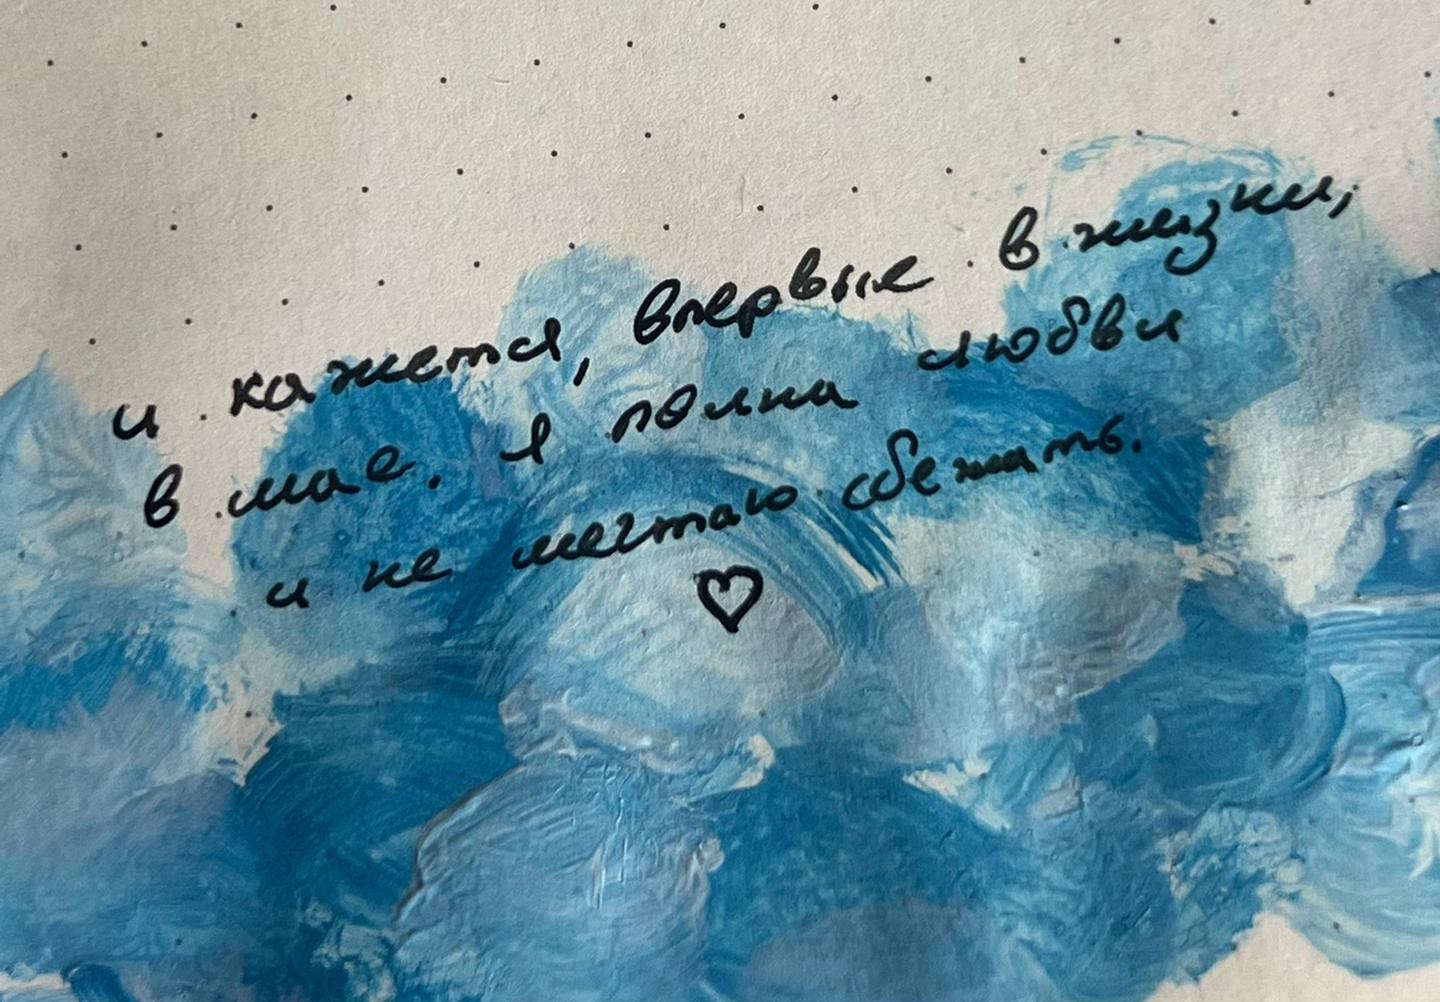 и кажется, впервые в жизни,
в мае, я полна любви
и не мечтаю сбежать.